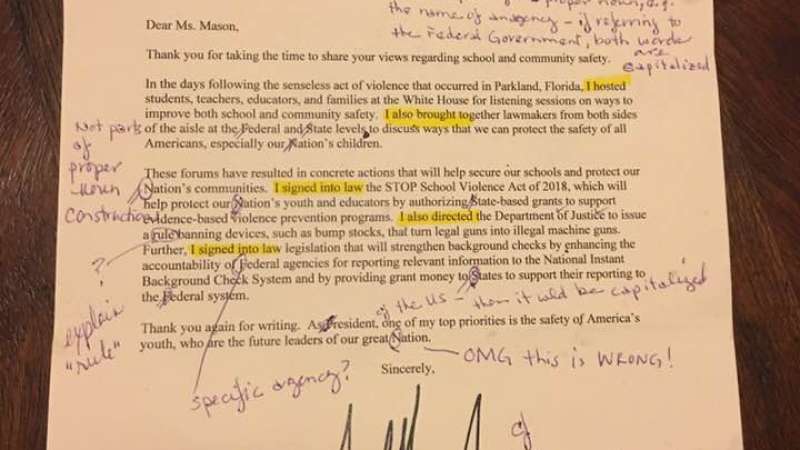 proper noun, e.g.
the name of an agency – if referring to
the Federal Government, both words
are
capitalized
Dear Ms. Mason,
Thank you for taking the time to share your views regarding school and community safety.
In the days following the senseless act of violence that occurred in Parkland, Florida, I hosted
students, teachers, educators, and families at the White House for listening sessions on ways to
improve both school and community safety. I also brought together lawmakers from both sides
of the aisle at the Federal and State levels to discuss ways that we can protect the safety of all
Americans, especially our Nation's children.
Not parts
of
proper
noun
construction
These forums have resulted in concrete actions that will help secure our schools and protect our
Nation's communities. I signed into law the STOP School Violence Act of 2018, which will
help protect our Nation's youth and educators by authorizing State-based grants to support
evidence-based violence prevention programs. I also directed the Department of Justice to issue
a rule banning devices, such as bump stocks, that turn legal guns into illegal machine guns.
Further, I signed into law legislation that will strengthen background checks by enhancing the
accountability of Federal agencies for reporting relevant information to the National Instant
Background Check System and by providing grant money to States to support their reporting to
the Federal system.
?
explain
"rule"
of the US – then it wld be capitalized
Thank you again for writing. As President, one of my top priorities is the safety of America's
youth, who are the future leaders of our great Nation.
OMG this is WRONG!
specific agency?
Sincerely,